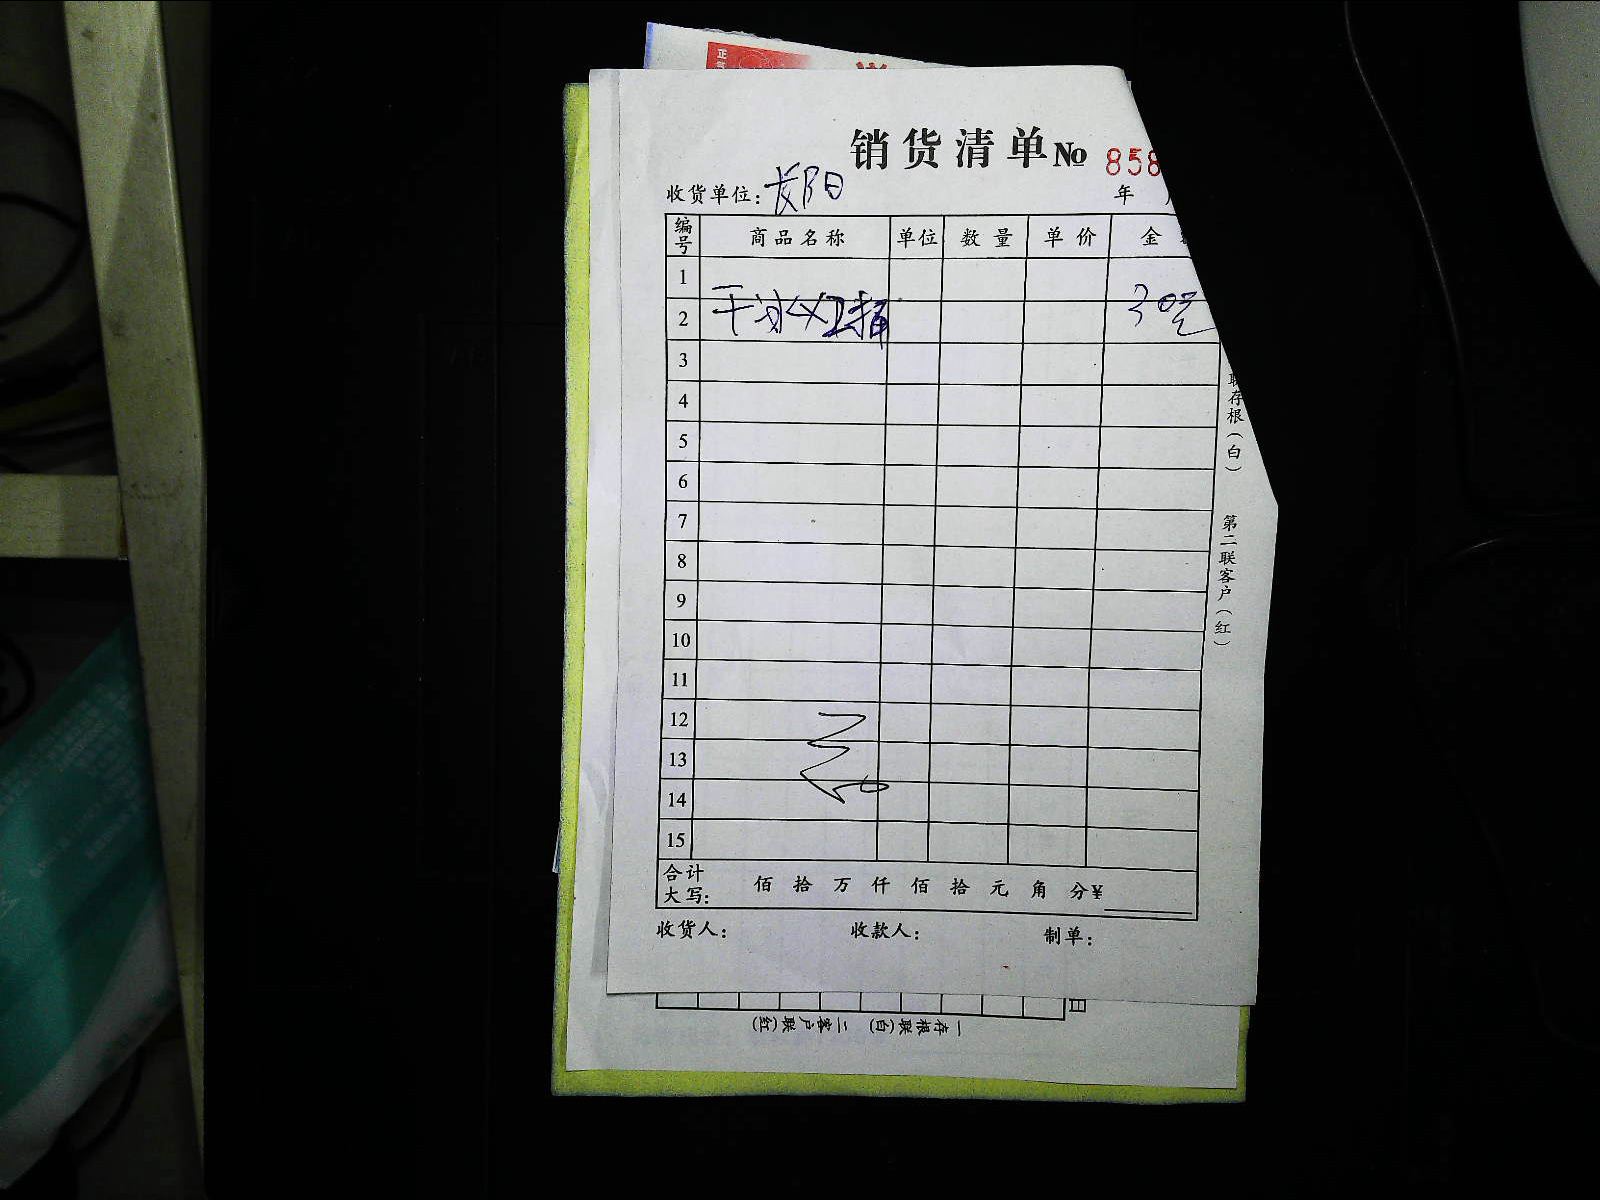 正
销货清单 № 858
收货单位: 长阳 年
编号 商品名称 单位 数量 单价 金
1
2 30元
3
4
5
6
7
8
9
10
11
12
13
14
15
合计大写: 佰 拾 万 仟 佰 拾 元 角 分 ¥
收货人: 收款人: 制单:
联存根(白)
第二联客户(红)
日
一存根联(白) 二客户联(红)